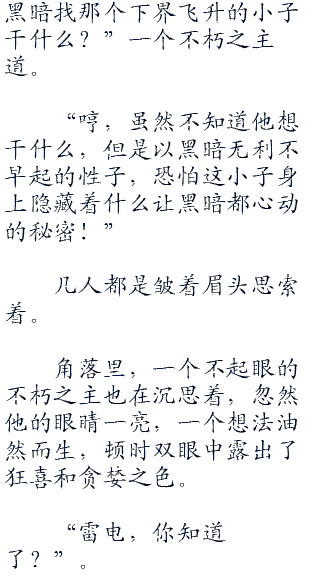 黑暗找那个下界飞升的小子
干什么？”一个不朽之主
道。
“哼，虽然不知道他想
干什么，但是以黑暗无利不
早起的性子，恐怕这小子身
上隐藏着什么让黑暗都心动
的秘密！”
几人都是皱着眉头思索
着。
角落里，一个不起眼的
不朽之主也在沉思着，忽然
他的眼睛一亮，一个想法油
然而生，顿时双眼中露出了
狂喜和贪婪之色。
“雷电，你知道
了？”。